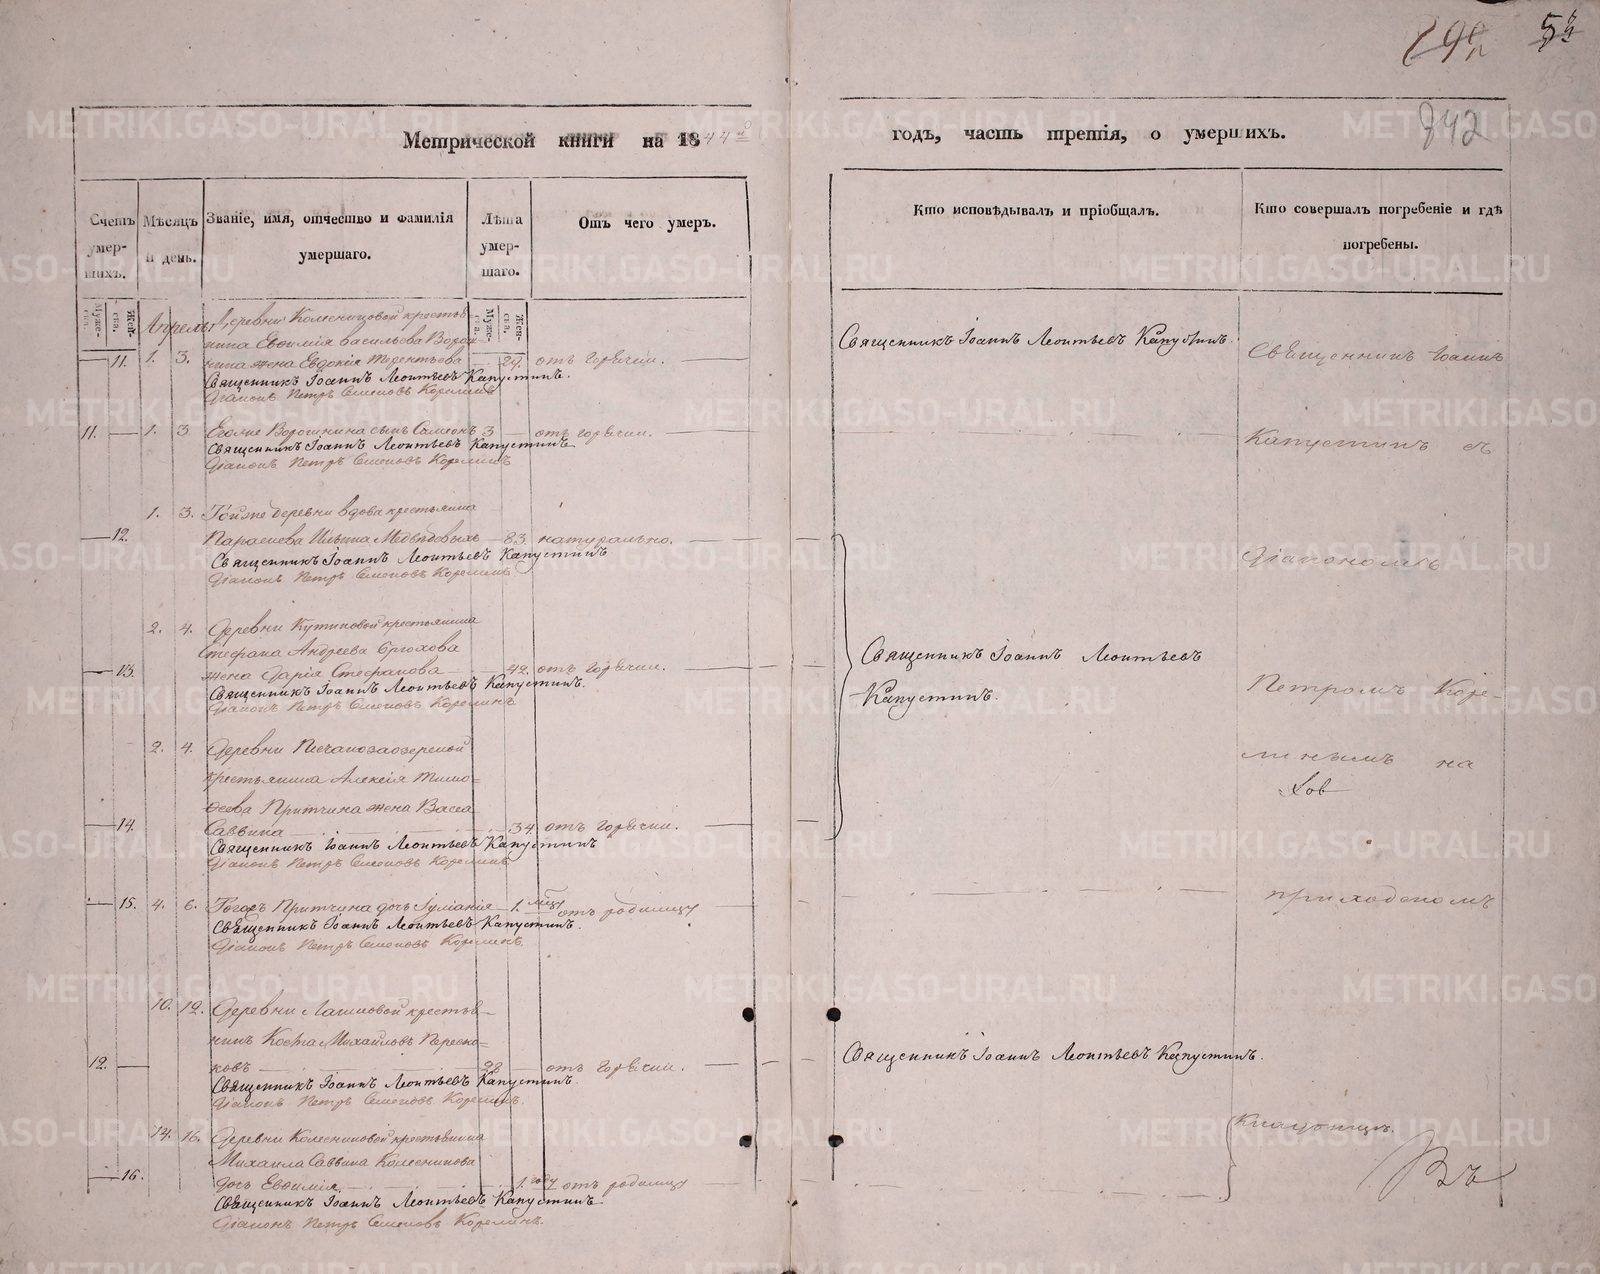 5
842
Метрической книги на 1844
годъ, часть третія, о умершихъ.
Счетъ умерших.
Мѣсяцъ и день.
Званіе, имя, отчество и фамилія умершаго.
Лѣта умершаго.
Отъ чего умер.
Кто исповѣдывалъ и пріобщалъ.
Кто совершалъ погребеніе и гдѣ погребены.
Апрель
Деревни
крестья-
нина Евѳимія Васильева
жена Евдокія Терентьева
11. 1. 3. 29. отъ горячки.
Священникъ Іоаннъ Леонтьевъ Капустинъ.
Діаконъ Петръ Семеновъ Корелинъ
11. 1. 3
сынъ Симеонъ 3 отъ горячки.
Священникъ Іоаннъ Леонтьевъ Капустинъ
Діаконъ Петръ Семеновъ Корелинъ
1. 3. Тойже деревни вдова крестьянина
12. 83. натурально.
Священникъ Іоаннъ Леонтьевъ Капустинъ
Діаконъ Петръ Семеновъ Корелинъ
2. 4. Деревни крестьянина
Стефана Андреева
13. жена Дарія Стефанова 42. отъ горячки.
Священникъ Іоаннъ Леонтьевъ Капустинъ.
Діаконъ Петръ Семеновъ Корелинъ
2. 4. Деревни
крестьянина Алексія Тимо-
ѳеева Притчина жена Васса
14. Саввина 34. отъ горячки.
Священникъ Іоаннъ Леонтьевъ Капустинъ
Діаконъ Петръ Семеновъ Корелинъ
15. 4. 6. Притчина дочь Іуліанія 1. отъ родимцу
Священникъ Іоаннъ Леонтьевъ Капустинъ.
Діаконъ Петръ Семеновъ Корелинъ.
10. 12. Деревни крестья-
нинъ Косма Михайловъ
12. отъ горячки.
Священникъ Іоаннъ Леонтьевъ Капустинъ.
Діаконъ Петръ Семеновъ Корелинъ.
14. 16. Деревни Колесниковой крестьянина
Михаила Саввина Колесникова
16. дочь Евѳимія 1. году отъ родимцу
Священникъ Іоаннъ Леонтьевъ Капустинъ.
Діаконъ Петръ Семеновъ Корелинъ.
Священникъ Іоаннъ Леонтьевъ Капустинъ.
Священникъ Іоаннъ Леонтьевъ
Капустинъ.
Священникъ Іоаннъ Леонтьевъ Капустинъ.
Священникъ Іоаннъ
Капустинъ съ
Діакономъ
Петромъ Коре-
линымъ на
приходскомъ
кладбищѣ.
Въ
METRIKI.GASO-URAL.RU